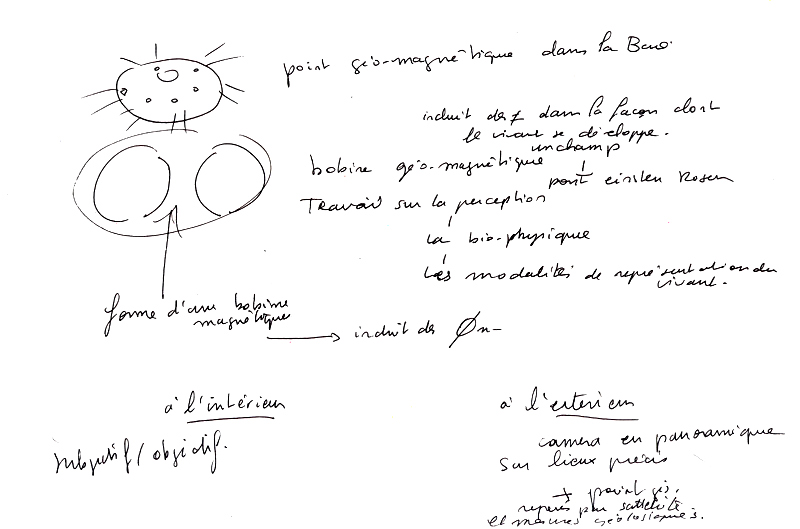 point géo-magnétique dans la
induit des ≠ dans la façon dont
le vivant se développe.
un champ
bobine géo-magnétique
pont einsten Rosen
Travail sur la perception
la bio-physique
Les modalités de représentation du
vivant.
forme d'une bobine
magnétique
induit des
à l'intérieur
subjectif / objectif.
à l'extérieur
caméra en panoramique
sur lieux précis
+ point géo.
repérés par satellite
et mesures géologiques.